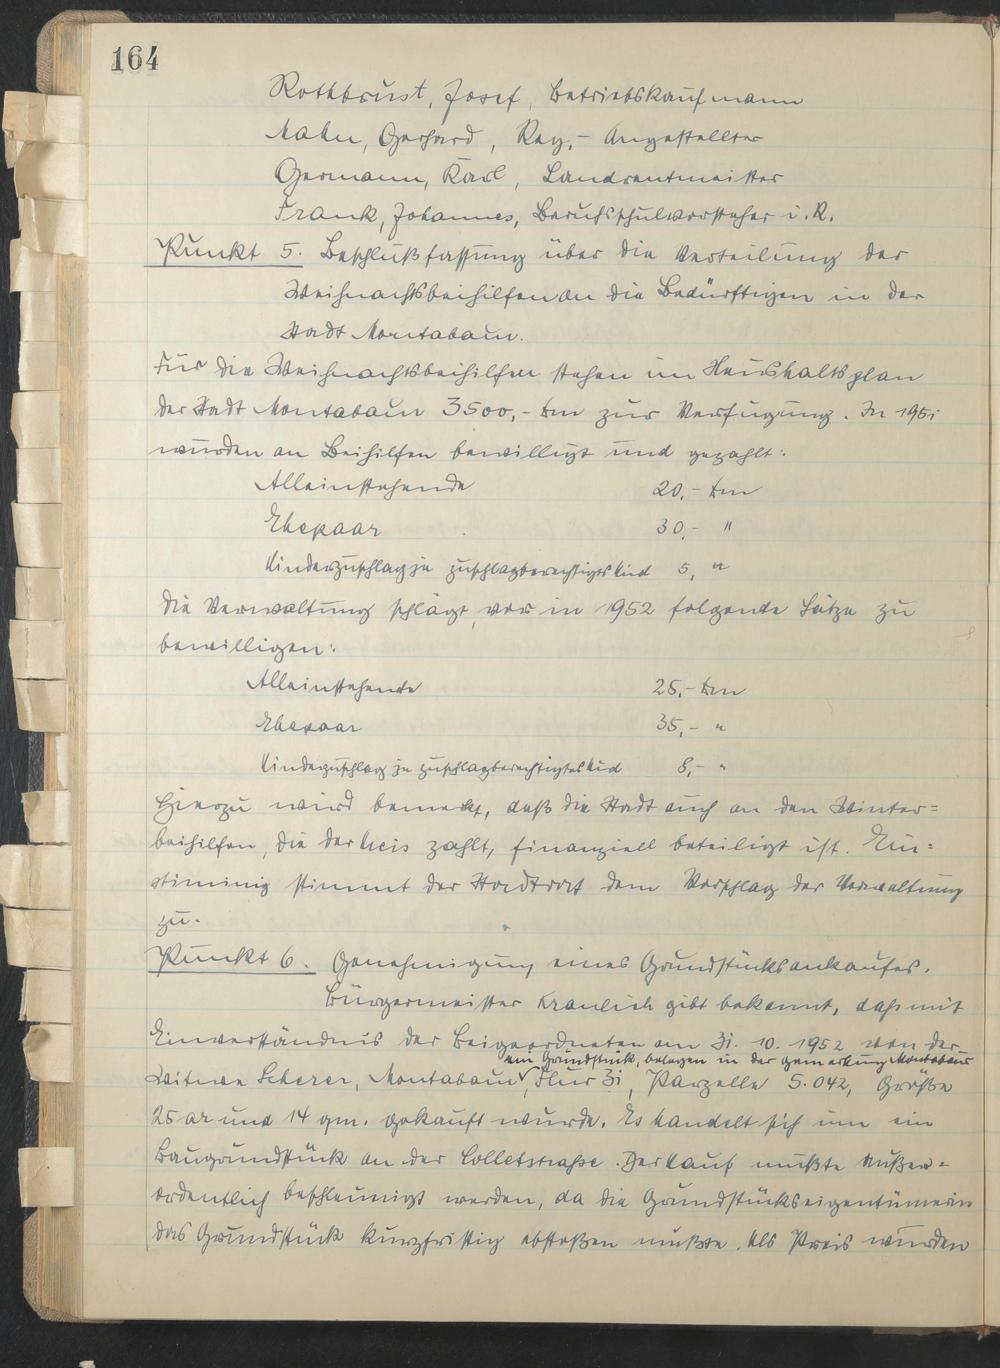 164
Rothbrust, Josef, Betriebskaufmann
Gerhard, Reg.- Angestellter
Germann, Karl, Landrentmeister
Frank, Johannes, Berufsschulvorsteher i. R.
Punkt 5. Beschlußfassung über die Verteilung der
Weihnachtsbeihilfen an die Bedürftigen in der
Stadt Montabaur.
Für die Weihnachtsbeihilfen stehen im Haushaltsplan
der Stadt Montabaur 3500,- Dm zur Verfügung. In 1951
wurden an Beihilfen bewilligt und gezahlt:
Alleinstehende 20,- Dm
Ehepaar 30,- "
Kinderzuschlag je zuschlagberechtigtes Kind 5, "
Die Verwaltung schlägt vor in 1952 folgende Sätze zu
bewilligen:
Alleinstehende 25,- Dm
Ehepaar 35,- "
Kinderzuschlag je zuschlagberechtigtes Kid 8,- "
Hierzu wird bemerkt, daß die Stadt auch an den Winter=
beihilfen, die der Kreis zahlt, finanziell beteiligt ist. Ein=
stimmig stimmt der Stadtrat dem Vorschlag der Verwaltung
zu.
Punkt 6. Genehmigung eines Grundstücksankaufes.
Bürgermeister Kraulich gibt bekannt, daß mit
Einverständnis der Beigeordneten am 31. 10. 1952 von der
ein Grundstück, belegen in der Gemarkung Montabaur
Witwe Scherer, Montabaur, Flur 31, Parzelle 5042, Größe
25 ar und 14 qm. gekauft wurde. Es handelt sich um ein
Baugrundstück an der Colletstraße. Der Kauf mußte außer=
ordentlich beschleunigt werden, da die Grundstückseigentümerin
das Grundstück kurzfristig abstoßen mußte. Als Preis wurden